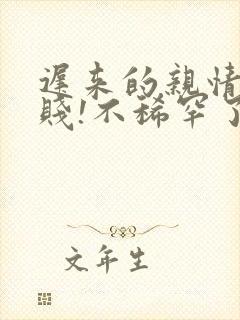 遲來的親情
賤!不稀罕了
文年生